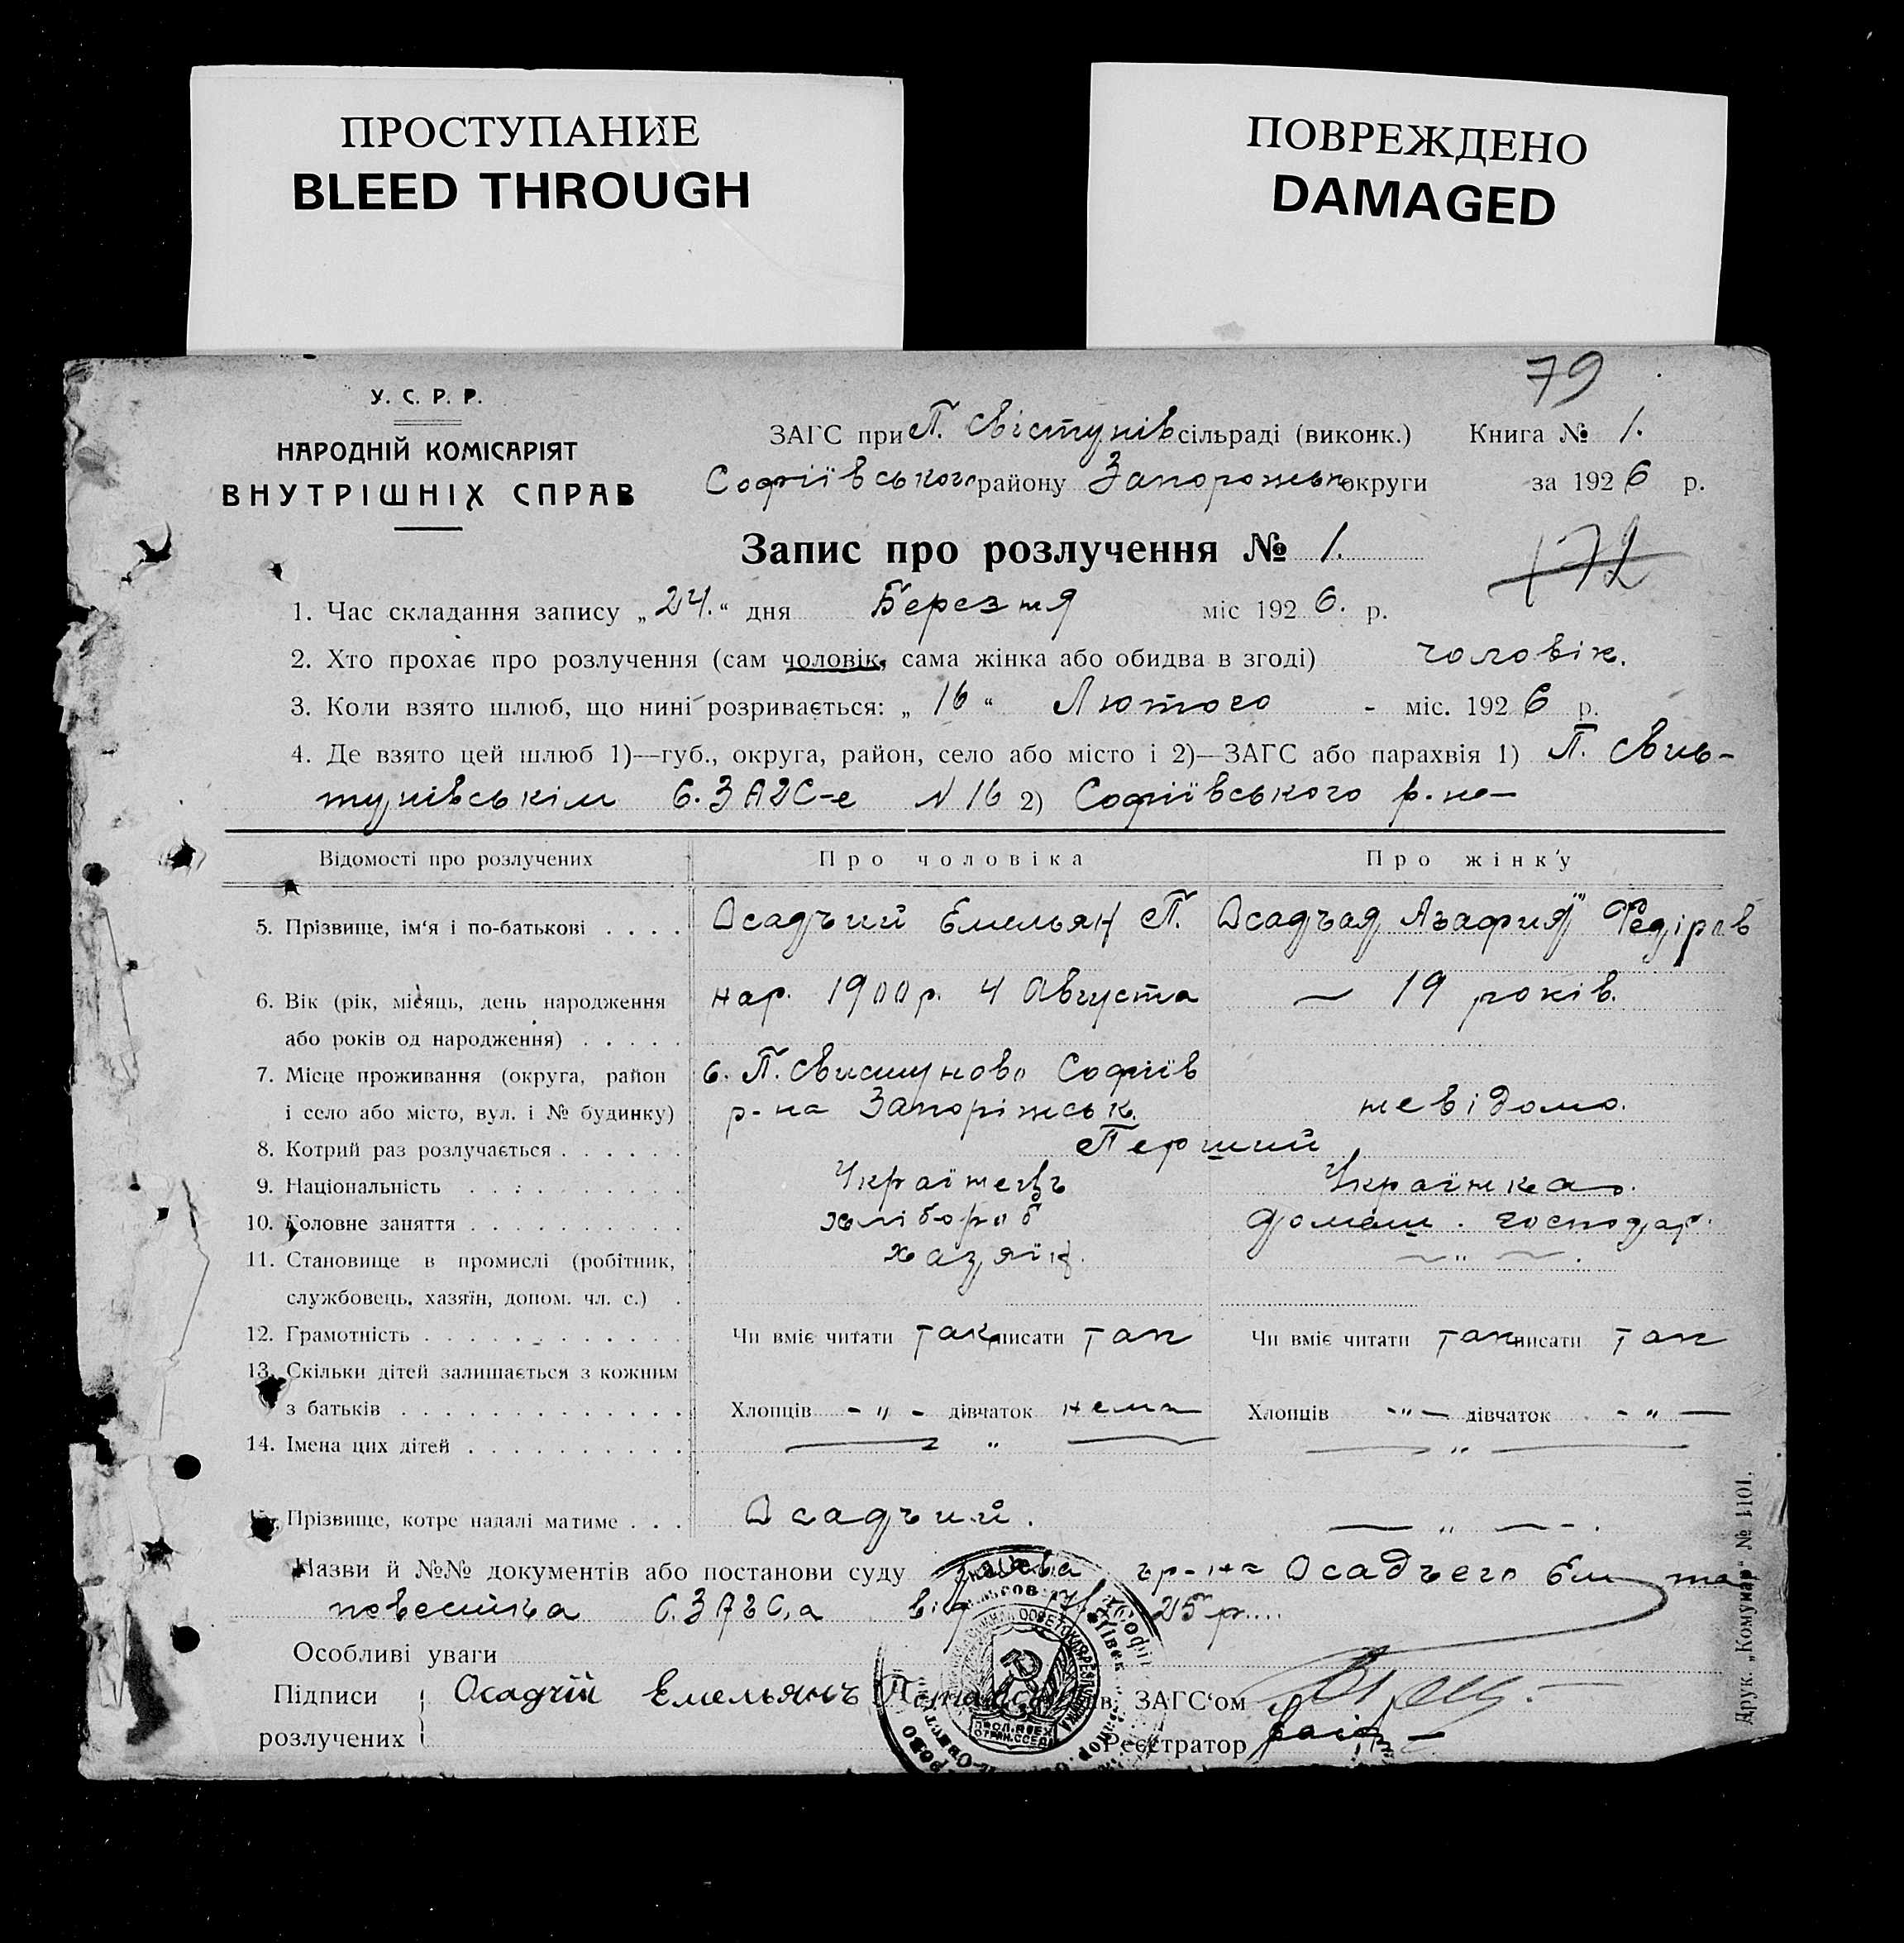 ПРОСТУПАНИЕ
BLEED THROUGH
ПОВРЕЖДЕНО
DAMAGED
79
У. С. Р. Р.
НАРОДНІЙ КОМІСАРІЯТ
ВНУТРІШНІХ СПРАВ
ЗАГС при П. Свістунів сільраді (виконк.) Книга № 1.
Софіївського району Запорожськ округи за 1926 р.
Запис про розлучення № 1.
172
1. Час складання запису „24.“ дня Березня міс 1926. р.
2. Хто прохає про розлучення (сам чоловік, сама жінка або обидва в згоді) чоловік.
3. Коли взято шлюб, що нині розривається: „16“ Лютого - міс. 1926 р.
4. Де взято цей шлюб 1)—губ., округа, район, село або місто і 2)—ЗАГС або парахвія 1) П. Свис-
тунівськім С.ЗАГС-е № 16 2) Софіївського р-на
Відомості про розлучених Про чоловіка Про жінку
5. Прізвище, ім‘я і по-батькові . . . . Осадъчий Емельян П. Осадъчая Агафия Федіров
6. Вік (рік, місяць, день народження нар. 1900 р. 4 Августа — 19 років.
або років од народження) . . . . .
7. Місце проживання (округа, район с. П. Свистуново Софіїв
і село або місто, вул. і № будинку) р-на Запоріжськ. невідомо.
8. Котрий раз розлучається . . . . . . Перший
9. Національність . . . . . . . . . Українець Українка.
10. Головне заняття . . . . . . . . . . хлібороб домаш. господар.
11. Становище в промислі (робітник, хазяїн. — „ — .
службовець, хазяїн, допом. чл. с.) .
12. Грамотність . . . . . . . . . . . . Чи вміє читати так писати так Чи вміє читати так писати так
13. Скільки дітей залишається з кожним
з батьків . . . . . . . . . . . . . . Хлопців - „ - дівчаток нема Хлопців - „ - дівчаток - „ —
14. Імена цих дітей . . . . . . . . . . — „ — — „ —
Прізвище, котре надалі матиме . . . Осадъчий. — „ — .
Назви й №№ документів або постанови суду гр-на Осадъчего Ем та
повестка С.ЗАГС,а від 25 р.
Особливі уваги
Підписи Осадчій Емельянъ Зав. ЗАГС‘ом
розлучених Реєстратор
Друк. „Комунар“ № 1101.